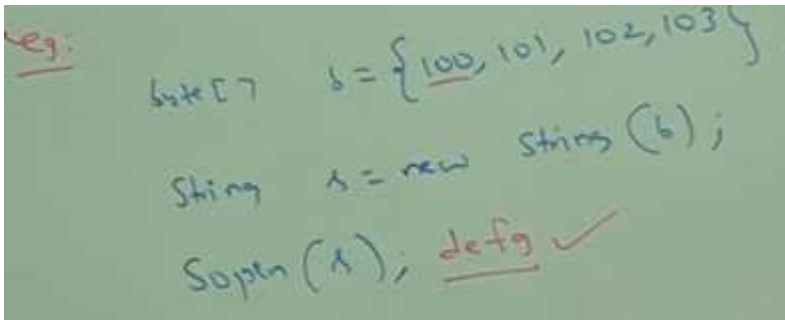 eg:
byte[] b = {100, 101, 102, 103}
String s = new String (b);
Sopln (s); defg ✓